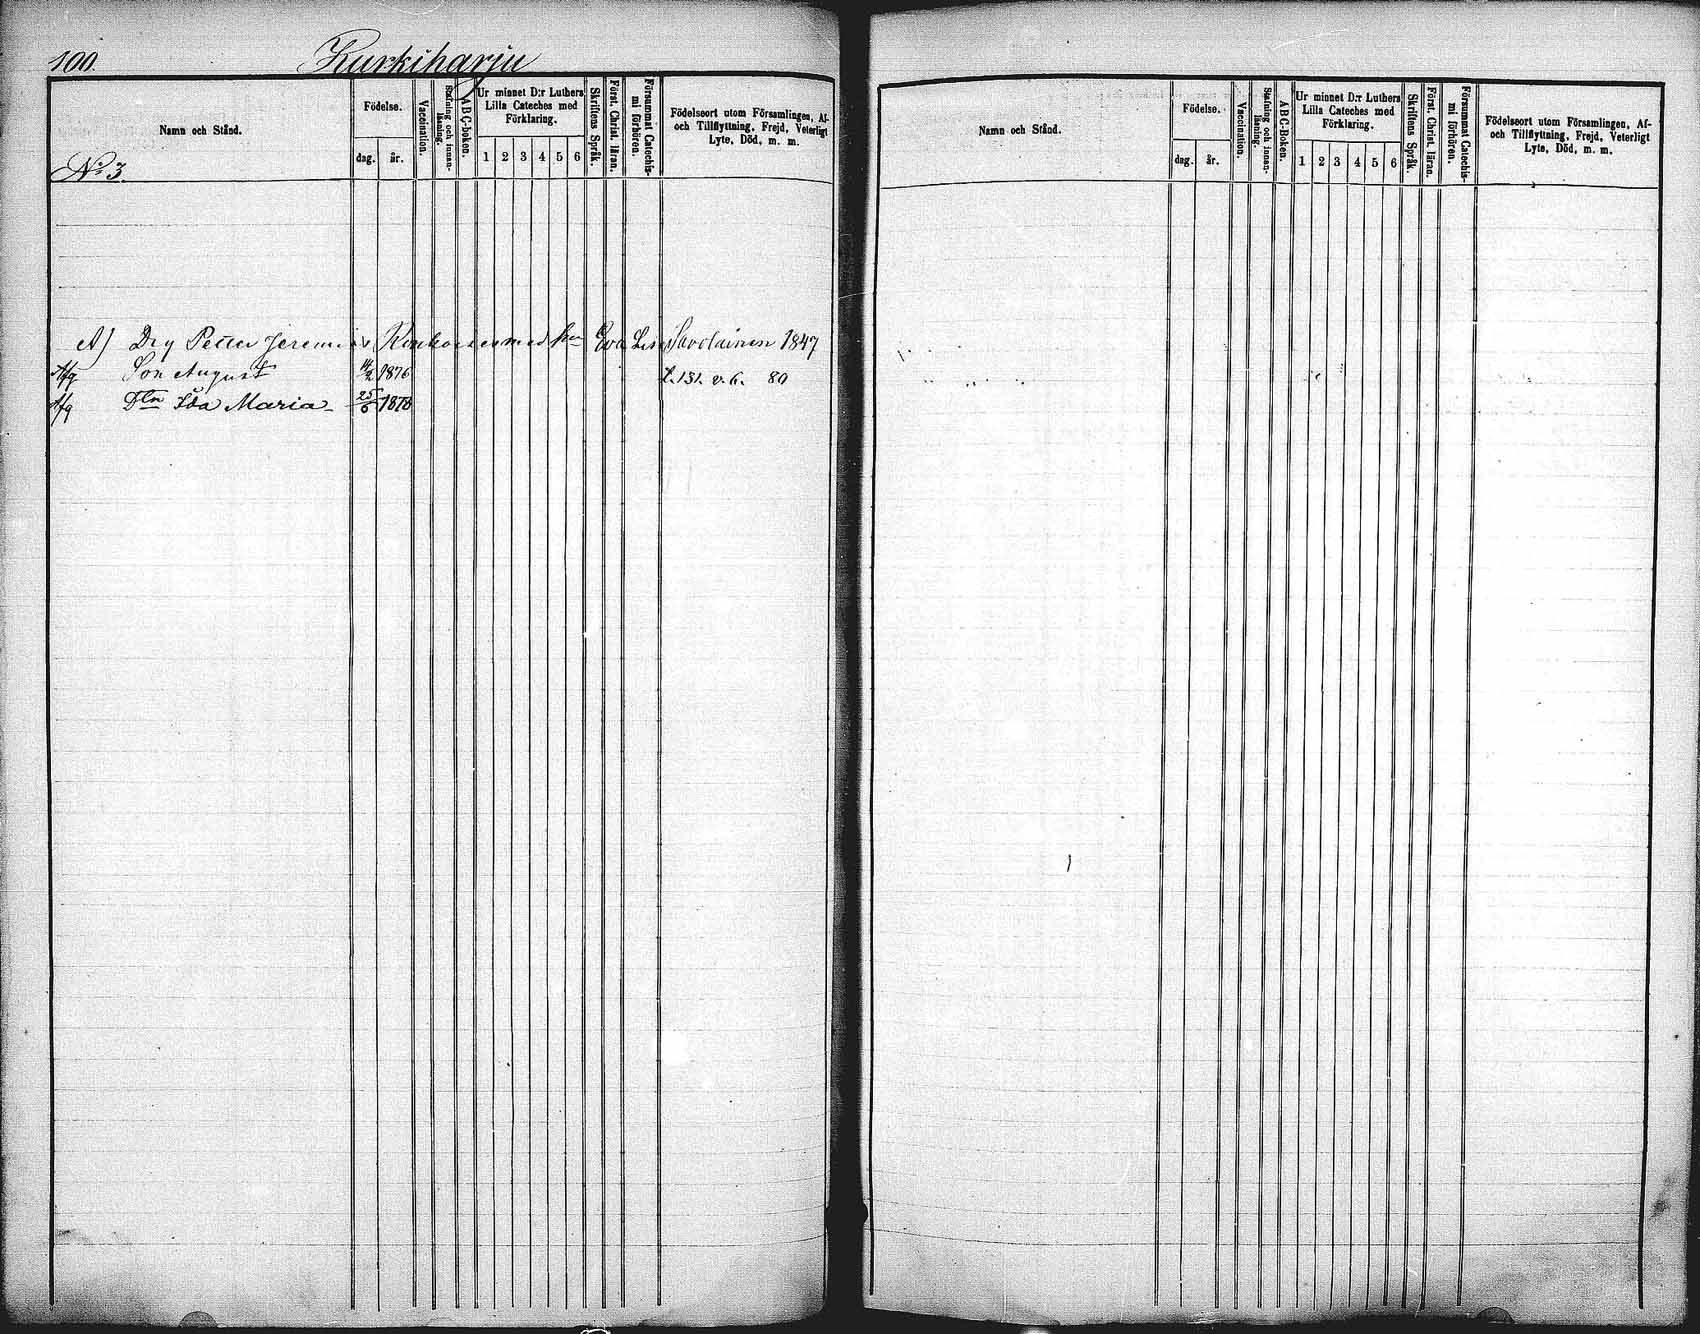 100. Kurkiharju
Namn och Stånd.
Födelse.
dag. år.
Vaccination.
Stafning och innanläsning.
ABC-boken.
Ur minnet D:r Luthers Lilla Cateches med Förklaring.
1 2 3 4 5 6
Skriftens Språk.
Först. Christ. läran.
Försummat Catechismi förhören.
Födelseort utom Församlingen, Af- och Tillflyttning, Frejd, Veterligt Lyte, Död, m. m.
No 3.
A) Drg Petter Jeremias med Eva Lisa Savolainen 1847
Afg Son August 14/2 1876 t. 131. v. 6. 80
Afg Dtn Ida Maria 25/6 1878
Namn och Stånd.
Födelse.
dag. år.
Vaccination.
Stafning och innanläsning.
ABC-Boken.
Ur minnet D:r Luthers Lilla Cateches med Förklaring.
1 2 3 4 5 6
Skriftens Språk.
Först. Christ. läran.
Försummat Catechismi förhören.
Födelseort utom Församlingen, Af- och Tillflyttning, Frejd, Veterligt Lyte, Död, m. m.